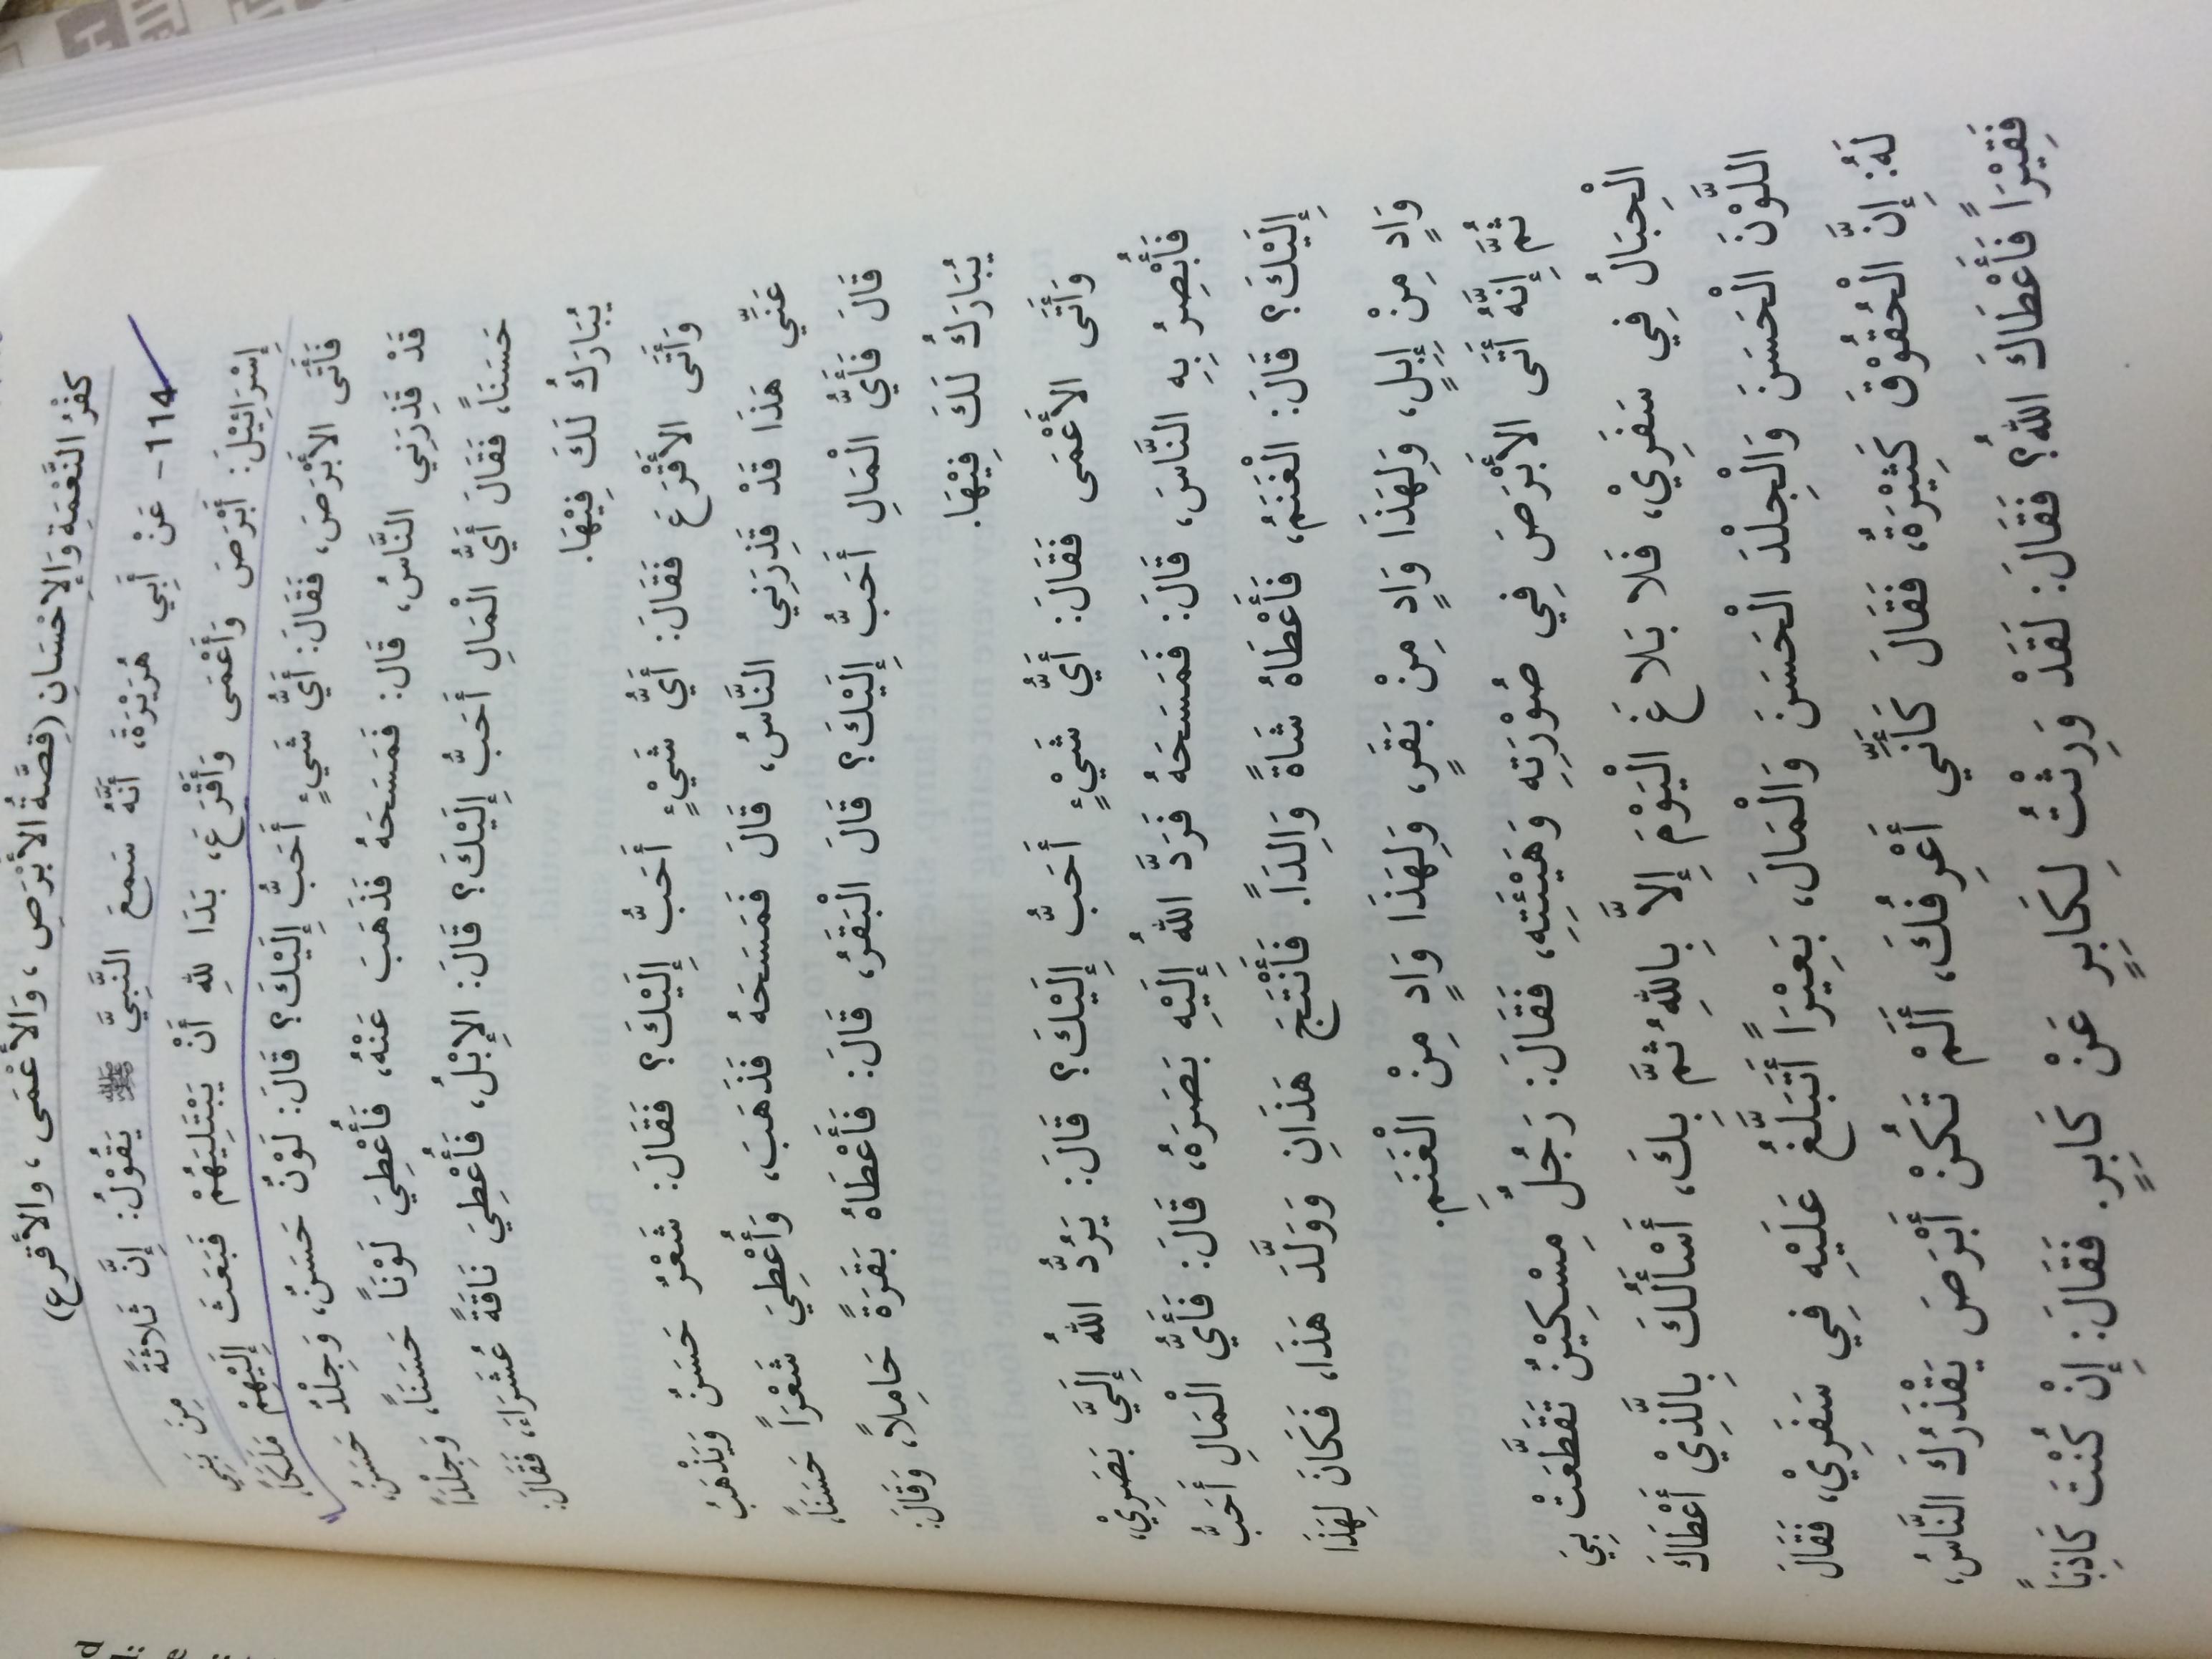 كفْرُ النِّعْمَةِ وَالإِحْسَانِ (قِصَّةُ الأَبْرَصِ، وَالأَعْمَى، والأَقرعِ)
١١٤- عَنْ أَبِي هُرَيْرَةَ، أَنَّهُ سَمِعَ النَّبِيَّ ﷺ يَقُوْلُ: إِنَّ ثَلاثَةً مِنَ بَنِي
إِسْرَائِيْلَ: أَبْرَصَ وَأَعْمَى وَأَقْرَعَ، بَدَا للهِ أَنْ يَبْتَلِيَهُمْ فَبَعَثَ إِلَيْهِمْ مَلَكَاً،
فَأَتَى الأَبْرَصَ، فَقَالَ: أَيُّ شَيءٍ أَحَبُّ إِلَيْكَ؟ قَالَ: لَوْنٌ حَسَنٌ، وَجِلْدٌ حَسَنٌ،
قَدْ قَذِرَنِي النَّاسُ، قَالَ: فَمَسَحَهُ فَذَهَبَ عَنْهُ، فَأُعْطِيَ لَوْنَاً حَسَنَاً، وَجِلْدَاً
حَسَنَاً، فَقَالَ أَيُّ الْمَالِ أَحَبُّ إِلَيْكَ؟ قَالَ: الإِبْلُ، فَأُعْطِيَ نَاقَةً عُشَرَاءَ، فَقَالَ:
يُبَارَكُ لَكَ فِيْهَا.
وَأَتَى الأَقْرَعَ فَقَالَ: أَيُّ شَيْءٍ أَحَبُّ إِلَيْكَ؟ فَقَالَ: شَعْرٌ حَسَنٌ وَيَذْهَبُ
عَنِّي هَذَا قَدْ قَذِرَنِي النَّاسُ، قَالَ فَمَسَحَهُ فَذَهَبَ، وَأُعْطِيَ شَعْرَاً حَسَنَاً،
قَالَ فَأَيُّ الْمَالِ أَحَبُّ إِلَيْكَ؟ قَالَ الْبَقَرُ، قَالَ: فَأَعْطَاهُ بَقَرَةً حَامِلاً، وَقَالَ:
يُبَارَكُ لَكَ فِيْهَا.
وَأَتَى الأَعْمَى فَقَالَ: أَيُّ شَيْءٍ أَحَبُّ إِلَيْكَ؟ قَالَ: يَرُدُّ اللهُ إِلَيَّ بَصَرِيْ،
فَأُبْصِرُ بِهِ النَّاسَ، قَالَ: فَمَسَحَهُ فَرَدَّ اللهُ إِلَيْهِ بَصَرَهُ، قَالَ: فَأَيُّ الْمَالِ أَحَبُّ
إِلَيْكَ؟ قَالَ: الْغَنَمُ، فَأَعْطَاهُ شَاةً وَالِدَاً. فَأَنْتَجَ هَذَانِ وَوَلَّدَ هَذَا، فَكَانَ لِهَذَا
وَادٍ مِنْ إِبِلٍ، وَلِهَذَا وَادٍ مِنْ بَقَرٍ، وَلِهَذَا وَادٍ مِنْ الْغَنَمِ.
ثُمَّ إِنَّهُ أَتَى الأَبْرَصَ فِي صُوْرَتِهِ وَهَيْئَتِهِ، فَقَالَ: رَجُلٌ مِسْكِيْنٌ تَقَطَّعَتْ بِيَ
الْحِبَالُ فِي سَفَرِيْ، فَلا بَلاغَ الْيَوْمَ إِلاَّ بِاللهِ ثُمَّ بِكَ، أَسْأَلُكَ بِالَّذِيْ أَعْطَاكَ
اللَّوْنَ الْحَسَنَ وَالْجِلْدَ الْحَسَنَ وَالْمَالَ، بَعِيْرَاً أَتَبَلَّغُ عَلَيْهِ فِي سَفَرِيْ، فَقَالَ
لَهُ: إِنَّ الْحُقُوْقَ كَثِيْرَةٌ، فَقَالَ كَأَنِّي أَعْرِفُكَ، أَلَمْ تَكُنْ أَبْرَصَ يَقْذَرُكَ النَّاسُ،
فَقِيْرَاً فَأَعْطَاكَ اللهُ؟ فَقَالَ: لَقَدْ وَرِثْتُ لِكَابِرٍ عَنْ كَابِرٍ. فَقَالَ: إِنْ كُنْتَ كَاذِبَاً